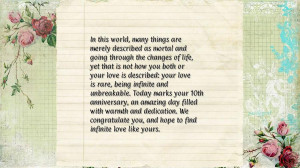 In this world, many things are
merely described as mortal and
going through the changes of life,
yet that is not how you both or
your love is described: your love
is rare, being infinite and
unbreakable. Today marks your 10th
anniversary, an amazing day filled
with warmth and dedication. We
congratulate you, and hope to find
infinite love like yours.